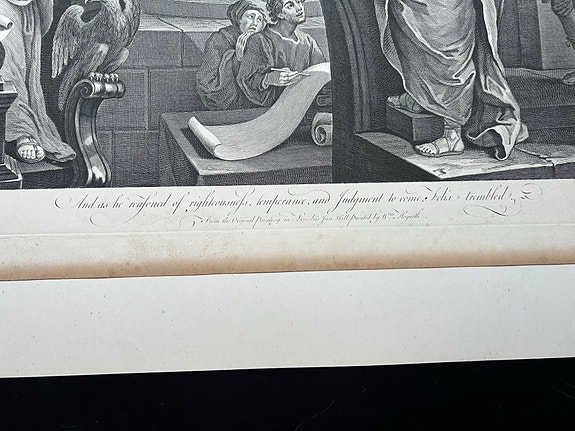 And as he reasoned of righteousness, temperance, and Judgment to come, Felix trembled.
From the Original Painting in Lincolns Inn Hall, painted by Wm. Hogarth